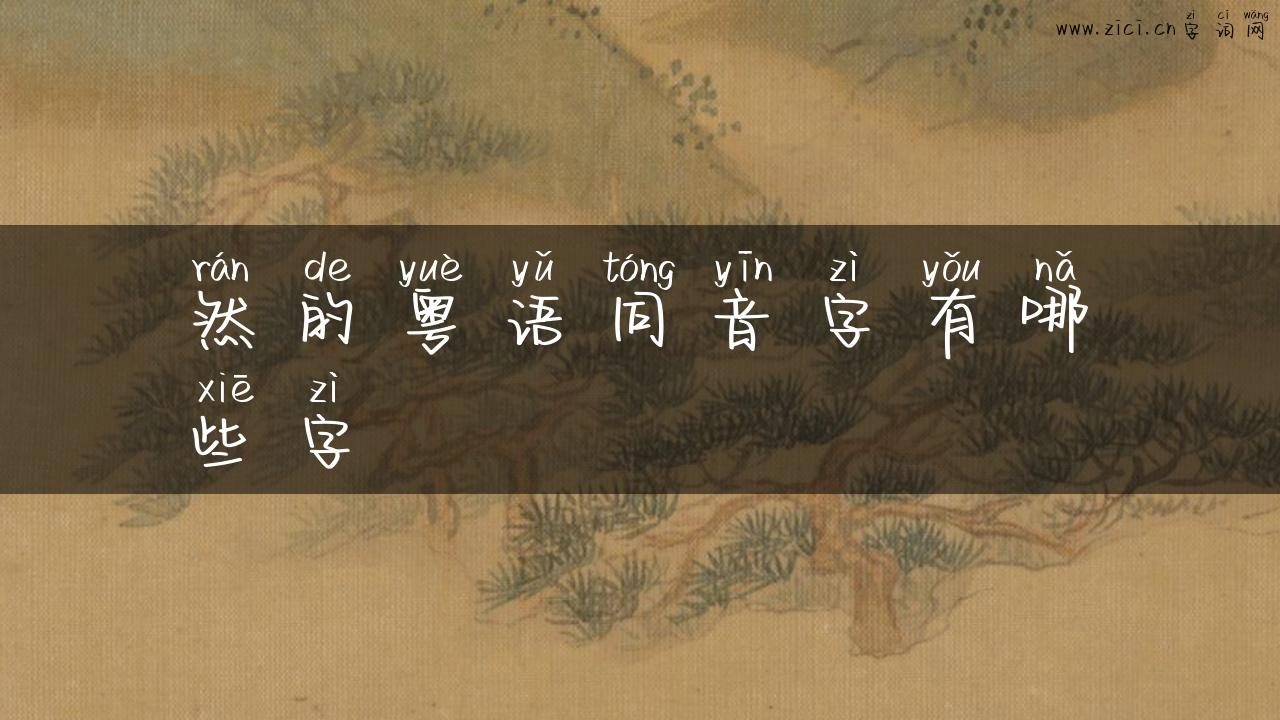 zì cí wǎng
www.zici.cn字词网
rán de yuè yǔ tóng yīn zì yǒu nǎ
然的粤语同音字有哪
xiē zì
些字